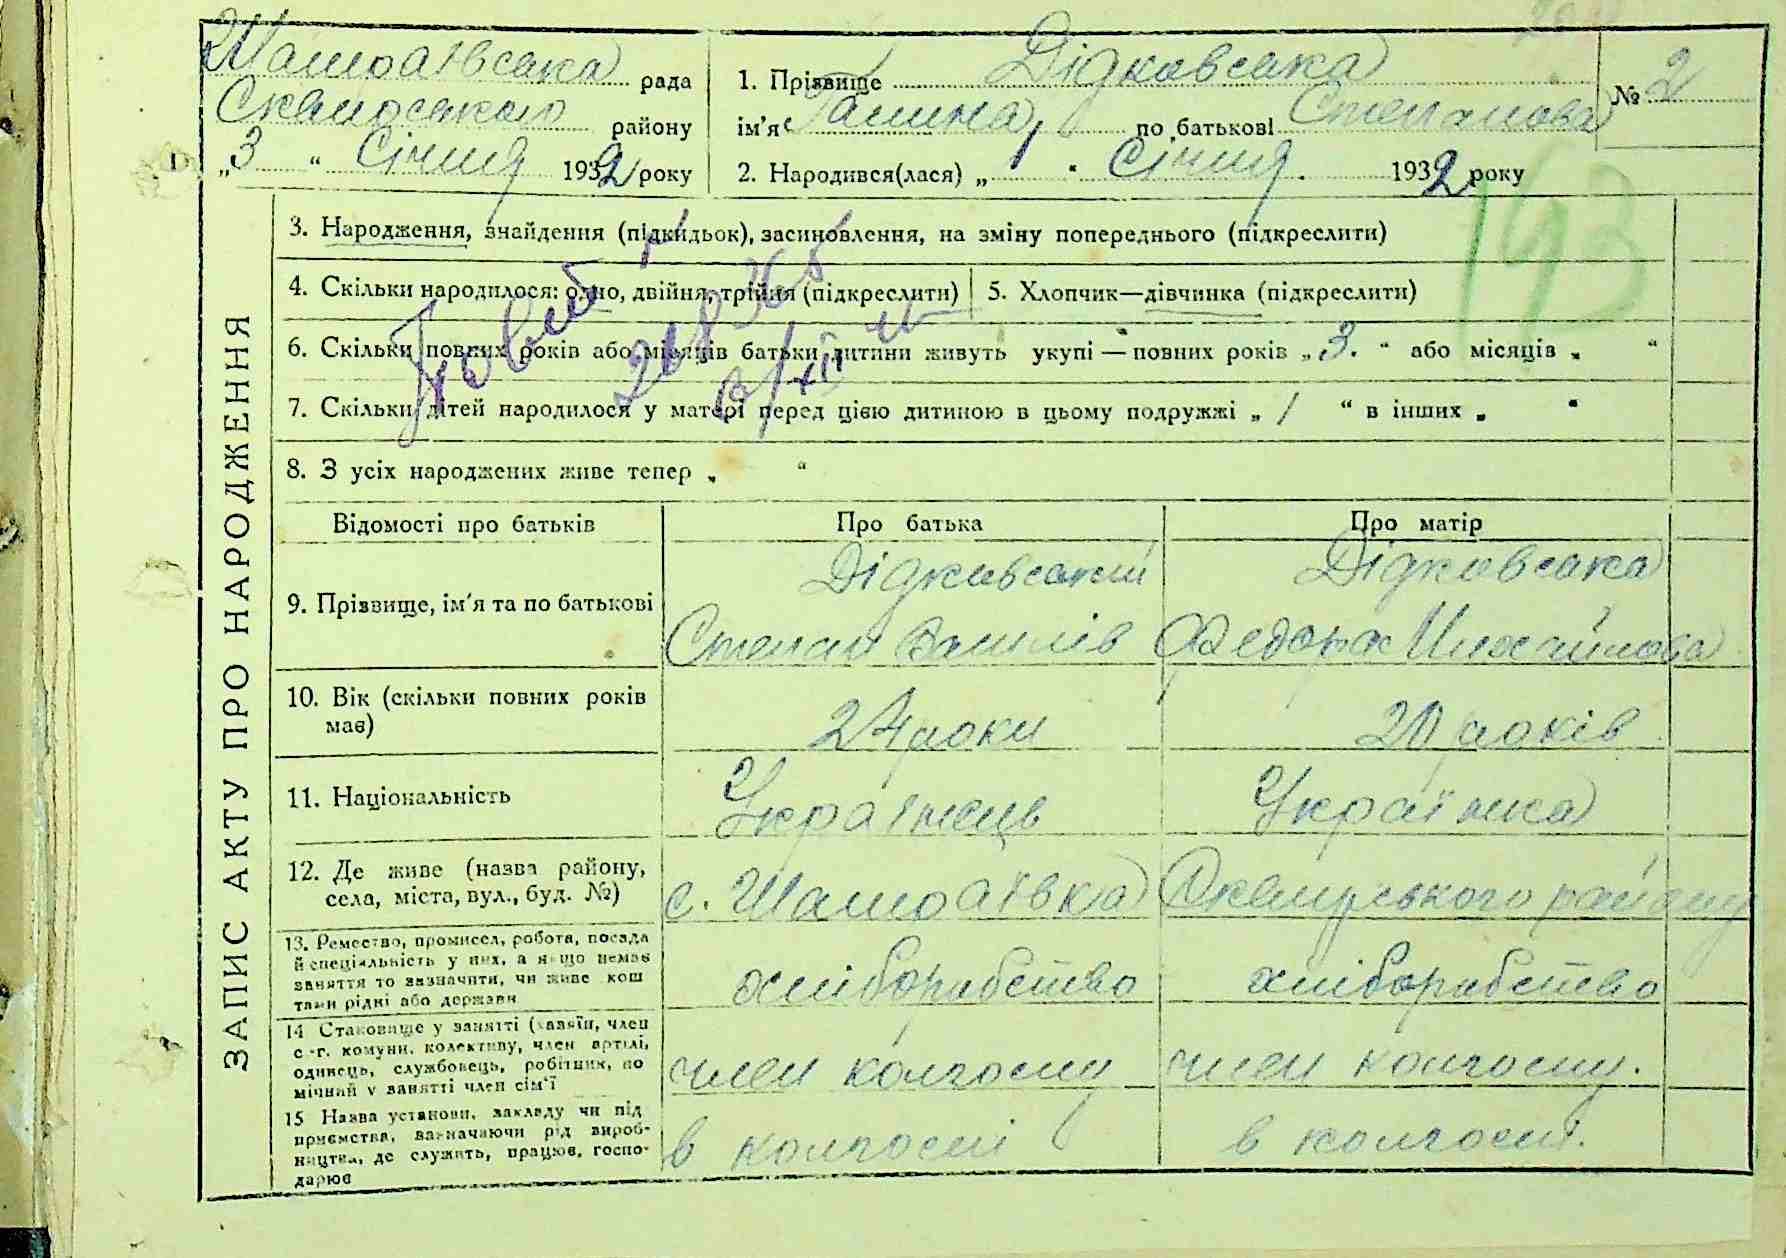 рада
району
„3“ Січня 1932 року
1. Прізвище Дідковська
ім'я Галина, по батькові Степанова
№ 2
2. Народився(лася) „ “ Січня. 1932 року
193
ЗАПИС АКТУ ПРО НАРОДЖЕННЯ
3. Народження, знайдення (підкидьок), засиновлення, на зміну попереднього (підкреслити)
4. Скільки народилося: одно, двійня, трійня (підкреслити)
5. Хлопчик—дівчинка (підкреслити)
6. Скільки повних років або місяців батьки дитини живуть укупі — повних років „3.“ або місяців „ “
7. Скільки дітей народилося у матері перед цією дитиною в цьому подружжі „ 1 “ в інших „ “
8. З усіх народжених живе тепер „ “
Відомості про батьків
Про батька
Про матір
9. Прізвище, ім'я та по батькові
Дідковський
Степан
Дідковська
Федора Михайлова
10. Вік (скільки повних років
має)
24 роки
20 років
11. Національність
Українець
Українка
12. Де живе (назва району,
села, міста, вул., буд. №)
с.
району
13. Ремество, промисел, робота, посада
й спеціяльність у них, а якщо немає
заняття то зазначити, чи живе кош
тами рідні або держави
хліборобство
хліборобство
14 Становище у занятті (хазяїн, член
с.-г. комуни, колективу, член артілі,
одинець, службовець, робітник, по
мічний у занятті член сім'ї
член колгоспу
член колгоспу.
15 Назва установи, закладу чи під
приємства, зазначаючи рід вироб-
ництва, де служить, працює, госпо-
дарює
в колгоспі
в колгоспі.